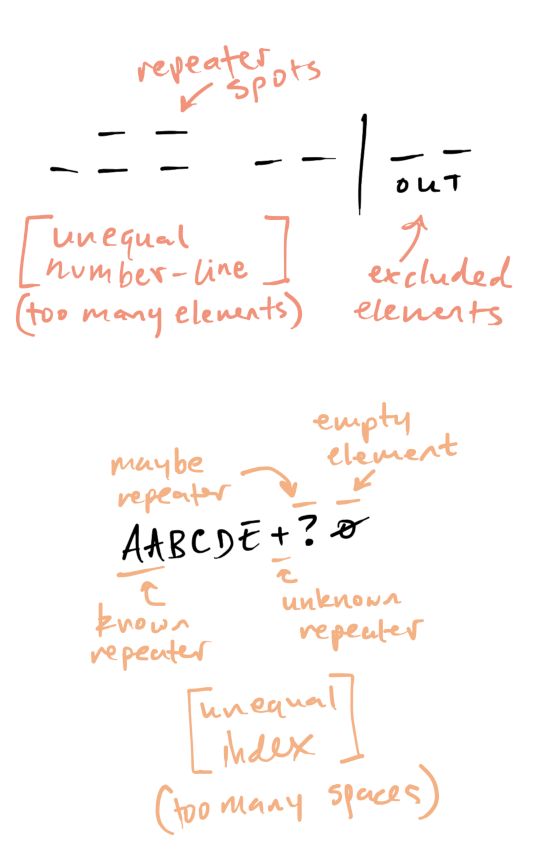 repeater
spots
OUT
[unequal
number-line]
(too many elements)
excluded
elements
empty
element
maybe
repeater
AABCDE + ? ∅
known
repeater
unknown
repeater
[unequal
index]
(too many spaces)